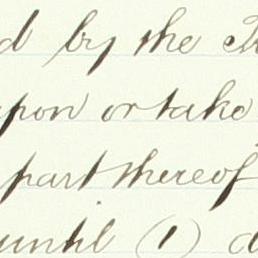 d by the
upon or take
part thereof
until (1) d